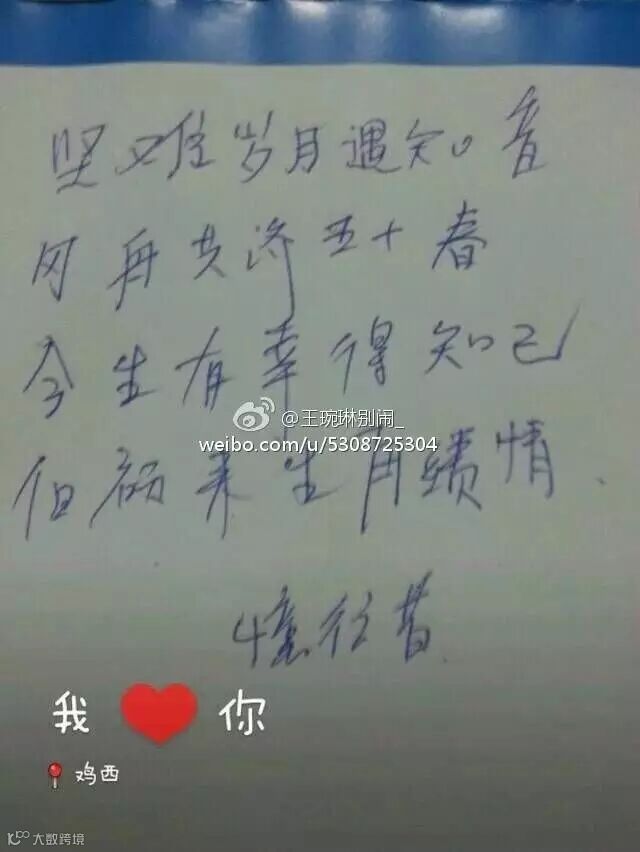 坚难岁月遇知音
同舟共济五十春
今生有幸得知己
但愿来生再续情.
忆往昔
@王琬琳别闹_
weibo.com/u/5308725304
我❤你
鸡西
大数跨境